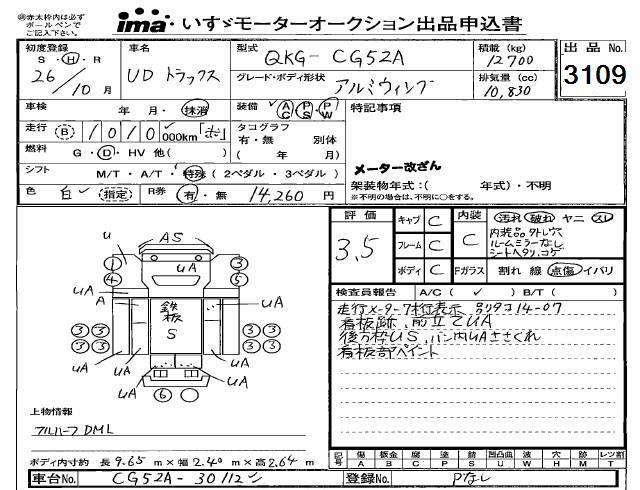 ㊟赤太枠内は必ず
ボールペンで
ご記入下さい。
ima いすゞモーターオークション出品申込書
初度登録 S・H・R 26/10月
車名 UD トラックス
型式 QKG- CG52A
グレード・ボディ形状 アルミウィング
積載(kg) 12700
排気量(cc) 10,830
出品 No. 3109
車検 年 月・抹消
装備 AC PS PW
特記事項
走行 (B) 1010 000km
タコグラフ
有・無 別体
( 年 月)
燃料 G・D・HV 他( )
メーター改ざん
シフト M/T・A/T・特殊(2ペダル・3ペダル)
架装物年式:( 年式)・不明
※不明の場合は、不明に○をする。
色 白 (指定) R券 有・無 14,260 円
評価 3.5
キャブ C
フレーム C
ボディ C
内装 C
Fガラス
汚れ 破れ ヤニ スレ
内装品外レ穴
ルームミラーなし
シートヘタリ、コゲ
割れ 線 点傷 イバリ
検査員報告 A/C( ✓ ) B/T( )
走行メーター7桁表示 別タコ14-07
看板跡、前立てUA
後方枠US、バン内UAささくれ
看板部ペイント
u AS
1 4 UA 3 5
UA A 鉄板 S UA
3 3 3 3
3 3 3 3
UA UA UA 6 UA
上物情報
アルハーフ DML
ボディ内寸約 長 9.65 m×幅 2.40 m×高 2.64 m
記号 傷 A 板金 B 腐 C 塗 P 錆 S 凹凸曲 U 波 W 穴 H 跡 M レツ割 T
車台No. CG52A - 30112
登録No. Pなし